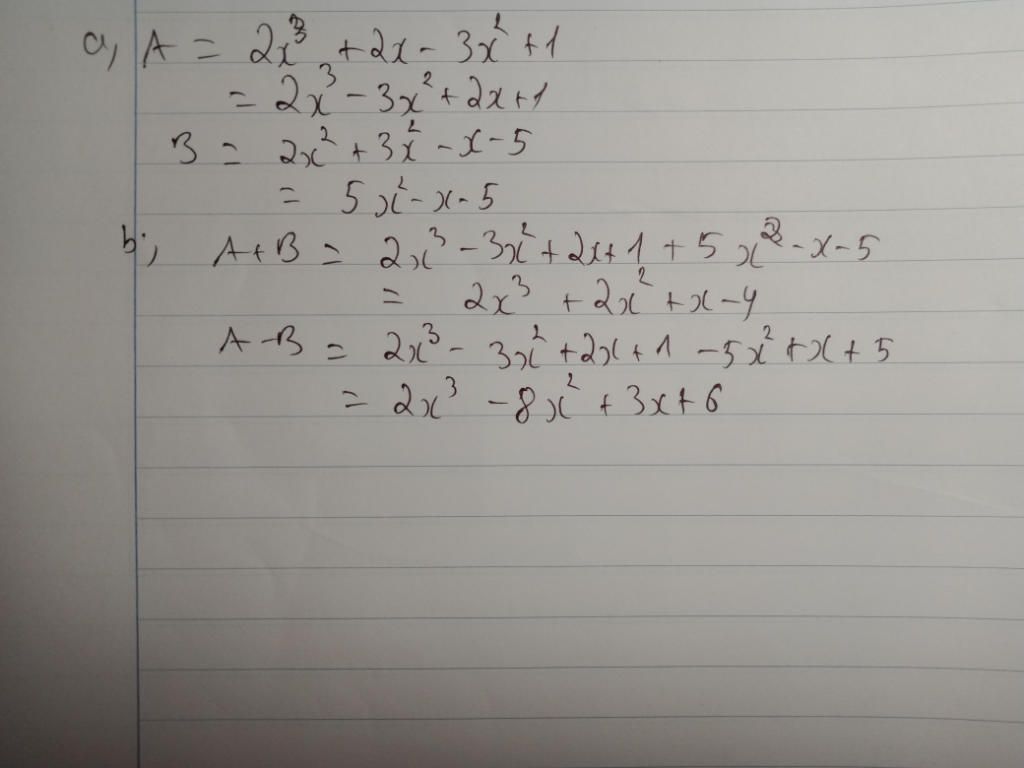 a, A = 2x³ + 2x - 3x² + 1
= 2x³ - 3x² + 2x + 1
B = 2x² + 3x² - x - 5
= 5x² - x - 5
b; A + B = 2x³ - 3x² + 2x + 1 + 5x² - x - 5
= 2x³ + 2x² + x - 4
A - B = 2x³ - 3x² + 2x + 1 - 5x² + x + 5
= 2x³ - 8x² + 3x + 6